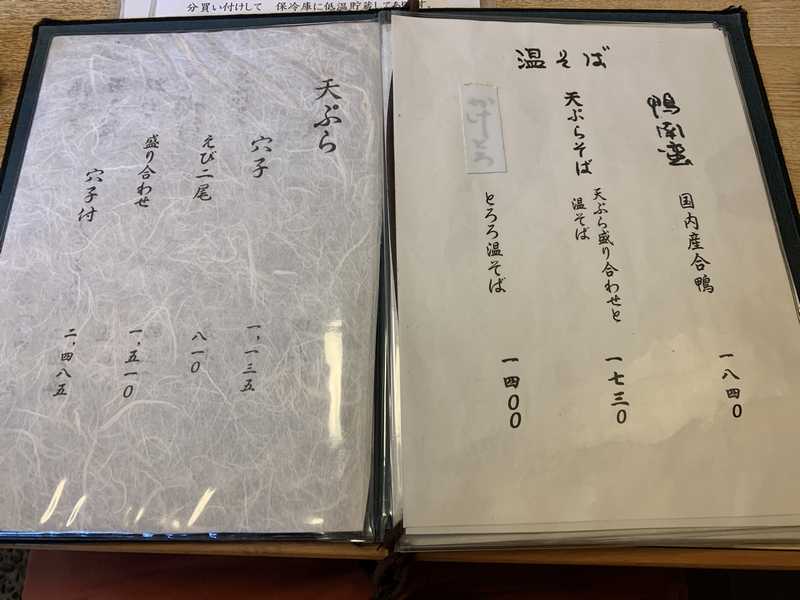 分買い付けして 保冷庫に低温貯蔵しております。
温そば
鴨南蛮
国内産合鴨
一八四〇
天ぷらそば
天ぷら盛り合わせと
温そば
一七三〇
かけとろ
とろろ温そば
一四〇〇
天ぷら
穴子
一、一三五
えび二尾
八一〇
盛り合わせ
一、五一〇
穴子付
二、四八五